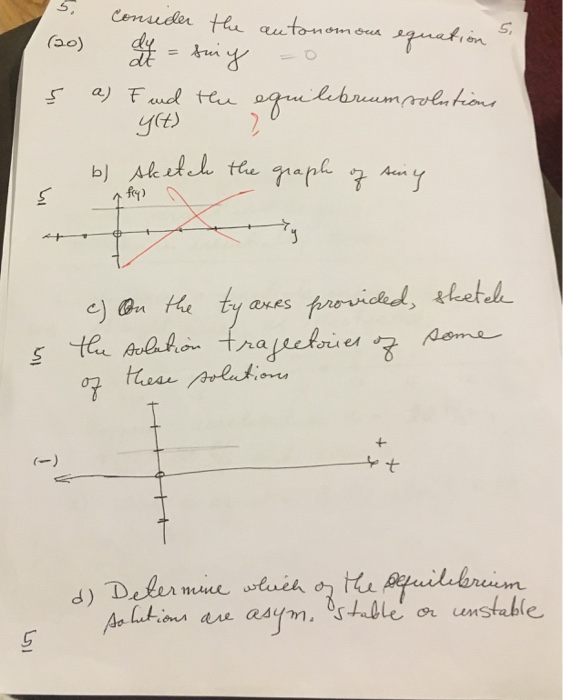 5. Consider the autonomous equation 5.
(20) dy/dt = sin y = 0
5 a) Find the equilibrium solutions
y(t) ?
b) sketch the graph of sin y
5 f(y)
y
c) On the ty axes provided, sketch
5 the solution trajectories of some
of these solutions
(-) + t
d) Determine which of the equilibrium
solutions are asym. stable or unstable
5